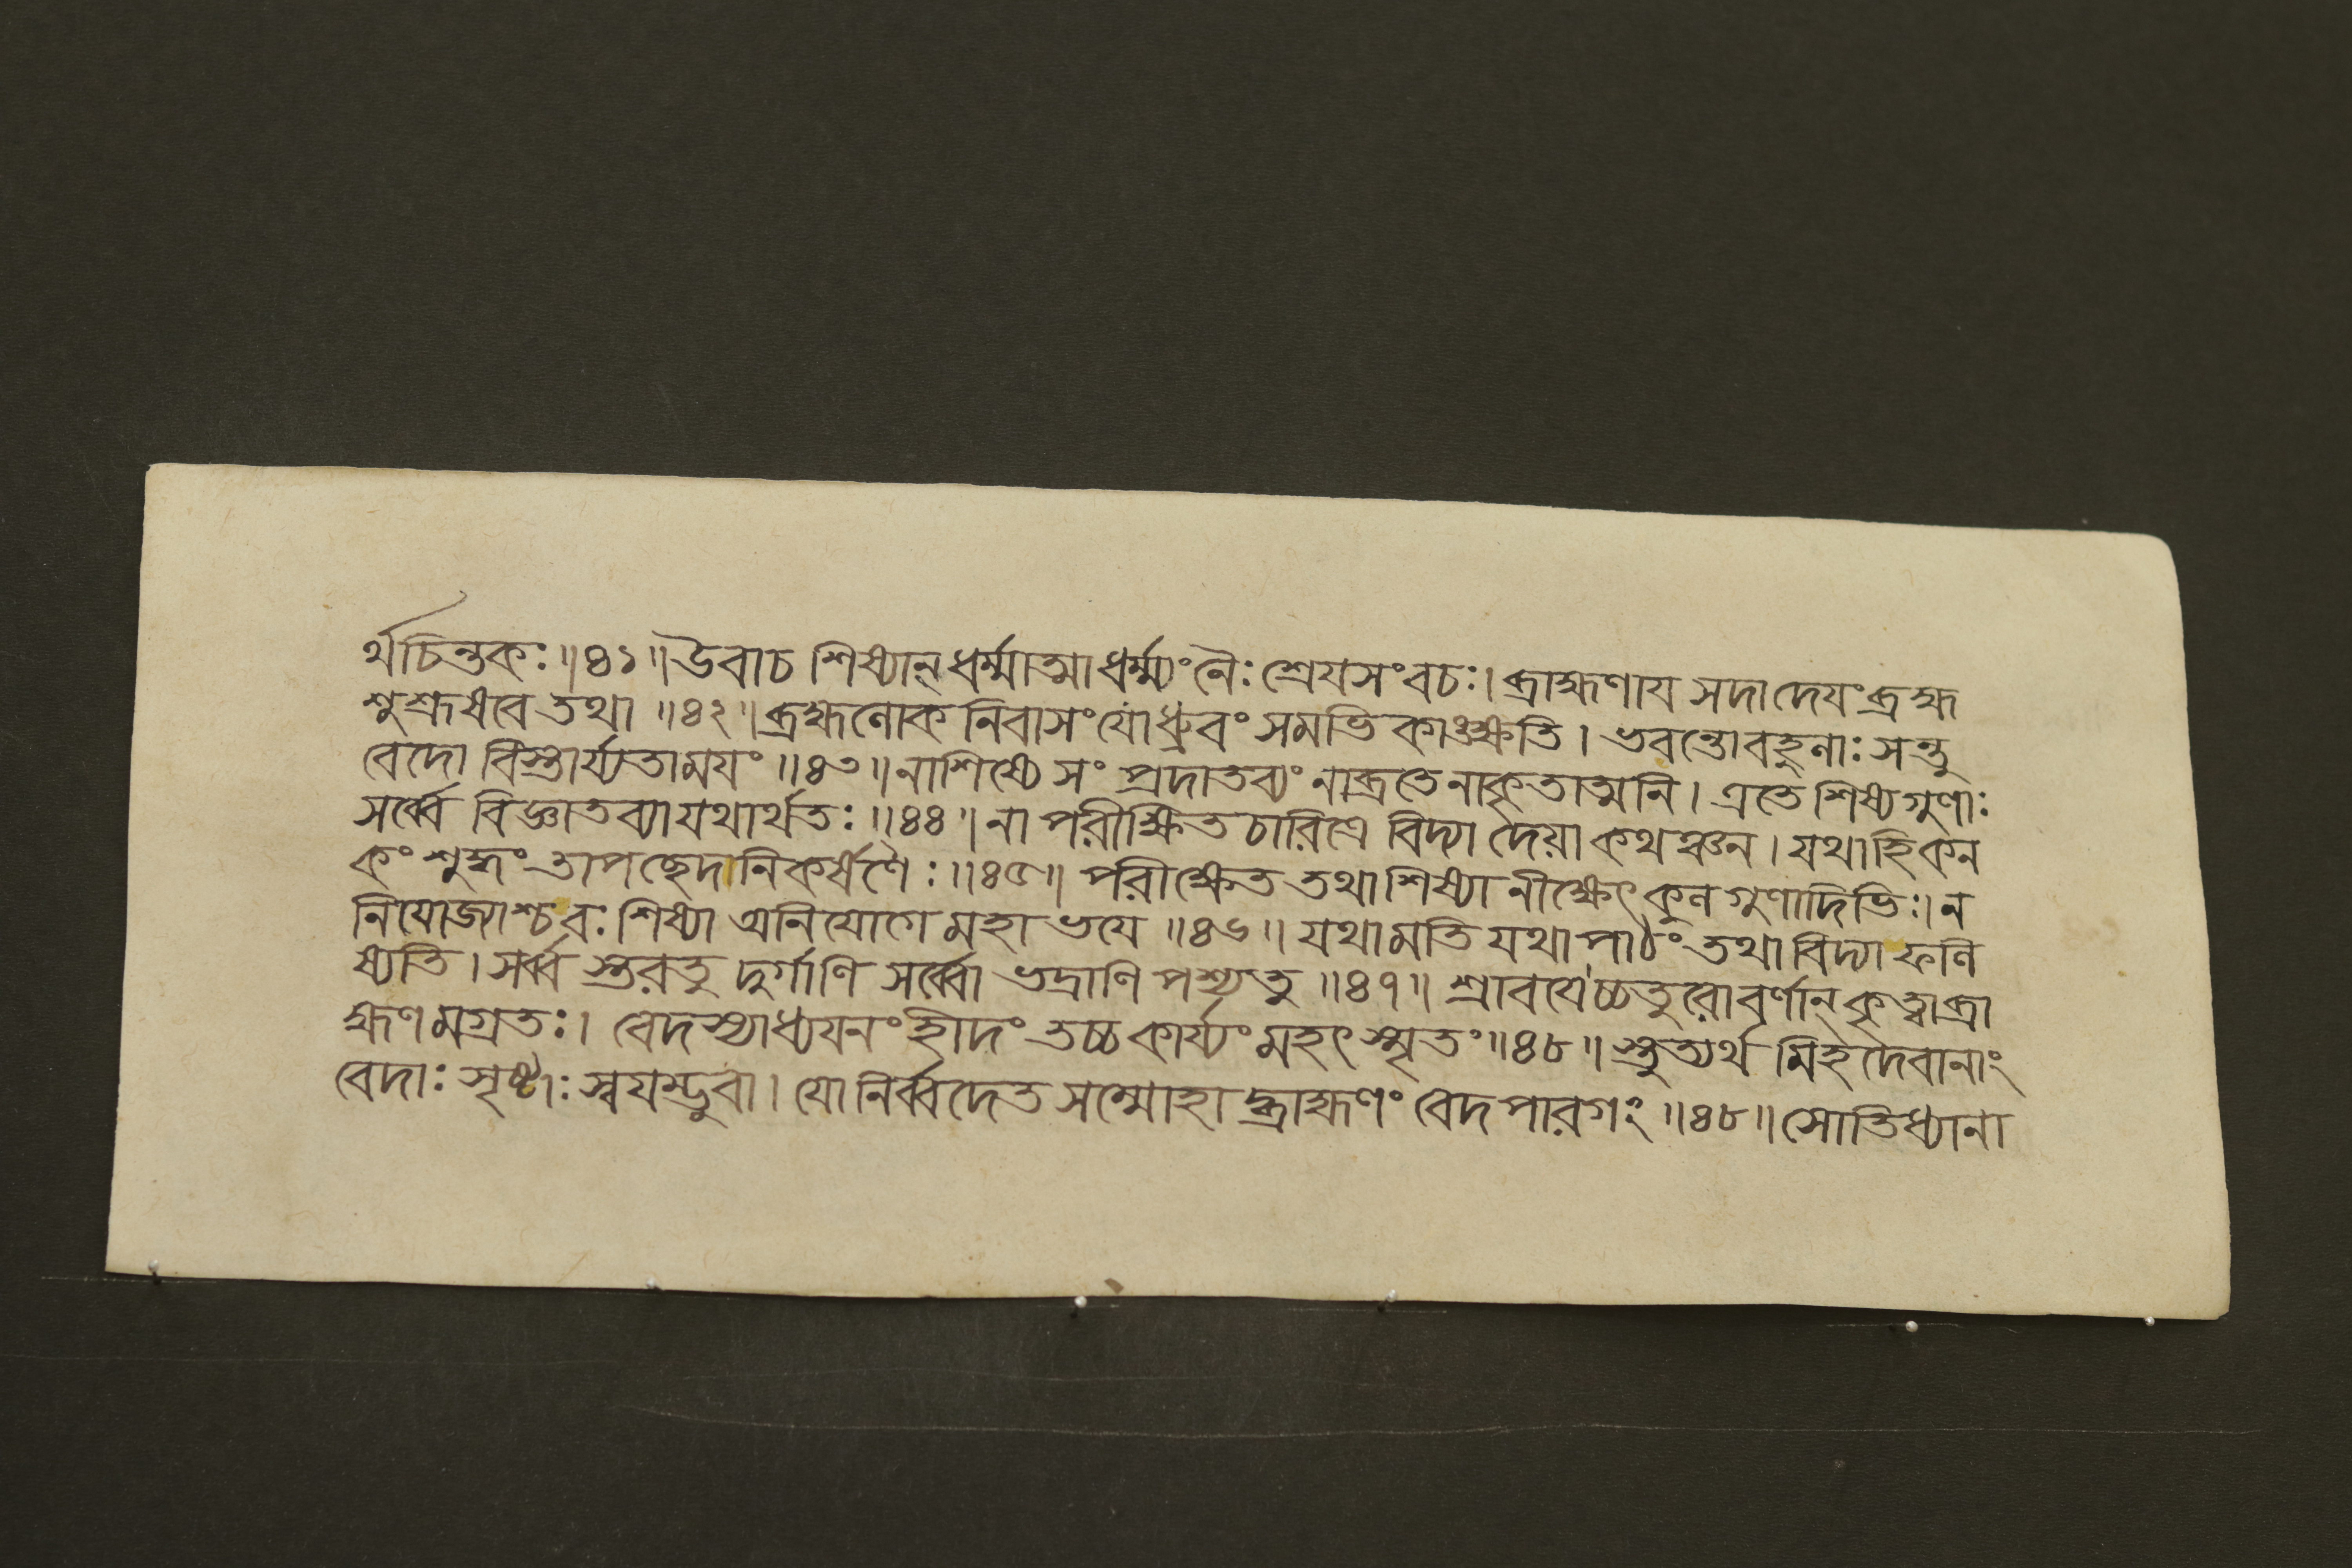 র্থচিন্তকঃ॥৪১॥উবাচ শিষ্যান্ ধর্ম্মাত্মা ধর্ম্ম্যং নৈঃ শ্রেযসংবচঃ। ব্রাহ্মণায সদা দেযং ব্রহ্ম
শুশ্রূষবে তথা ॥৪২॥ব্রহ্মলোক নিবাসং যো ধ্রুবং সমভি কাঙ্ক্ষতি। ভবন্তো বহুলাঃ সন্তু
বেদো বিস্তার্য্যতামযং॥৪৩॥নাশিষ্যে সং প্রদাতব্যং নাব্রতে নাকৃতাত্মনি। এতে শিষ্যগুণাঃ
সর্ব্বে বিজ্ঞাতব্যা যথার্থতঃ॥৪৪॥না পরীক্ষিত চারিত্রে বিদ্যা দেয়া কথঞ্চন। যথাহি কন
কং শুদ্ধং তাপচ্ছেদানিকর্ষণৈঃ॥৪৫॥ পরীক্ষেত তথা শিষ্যা নীক্ষেৎ কুল গুণাদিভিঃ।ন
নিযোজ্যাশ্চ বঃ শিষ্যা অনিযোগে মহা ভযে ॥৪৬॥ যথামতি যথা পাঠং তথা বিদ্যা ফলি
ষ্যতি। সর্ব্ব স্তরতু দুর্গাণি সর্ব্বো ভদ্রাণি পশ্যতু ॥৪৭॥ শ্রাবযেচ্চতুরো বর্ণান্ কৃত্বা ব্রা
হ্মণমগ্রতঃ। বেদস্যাধ্যযনং হীদং তচ্চ কার্য্যং মহৎ স্মৃতং॥৪৮॥ স্তুত্যর্থ মিহ দেবানাং
বেদাঃ সৃষ্টাঃ স্বযম্ভুবা। যো নির্ব্বদেত সম্মোহা দ্ব্রাহ্মণং বেদপারগং॥৪৮॥সোভিধ্যানা